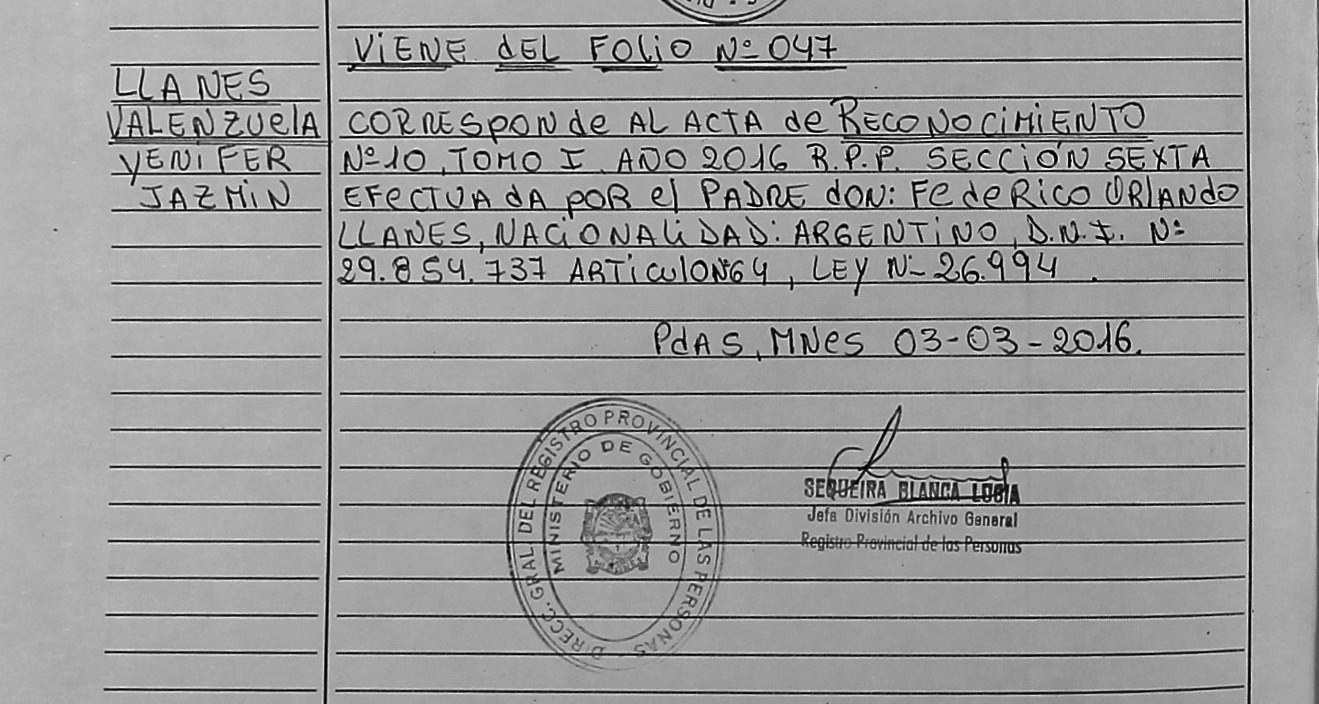 VIENE DEL FOLIO Nº 047
LLANES
VALENZUELA
YENIFER
JAZMIN
CORRESPONDE AL ACTA DE RECONOCIMIENTO
Nº 10, TOMO I AÑO 2016 R.P.P. SECCIÓN SEXTA
EFECTUADA POR EL PADRE DON: FEDERICO ORLANDO
LLANES, NACIONALIDAD: ARGENTINO, D.N.I. Nº
29.854.737 ARTICULO Nº 64, LEY Nº 26.994.
PDAS, MNES 03-03-2016.
DIRECC. GRAL. DEL REGISTRO PROVINCIAL DE LAS PERSONAS
MINISTERIO DE GOBIERNO
SEQUEIRA BLANCA LUCIA
Jefa División Archivo General
Registro Provincial de las Personas